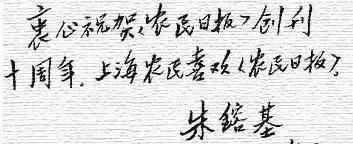 衷心祝贺《农民日报》创刊
十周年，上海农民喜欢《农民日报》。
朱镕基